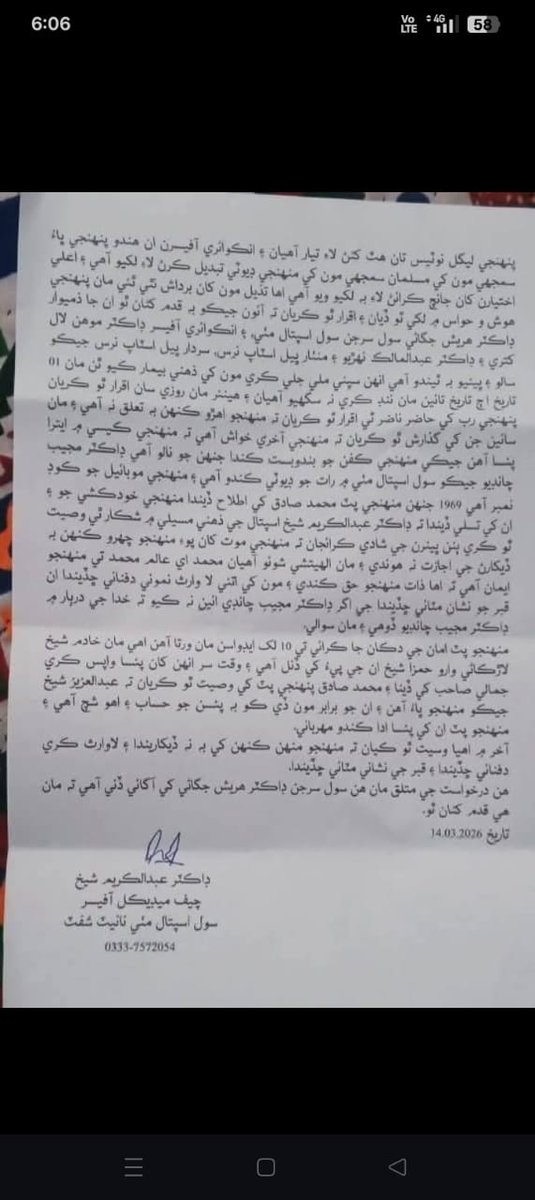 6:06
Vo LTE 4G 58
پنهنجي ليگل نوٽيس تان هٿ کڻڻ لاءِ تيار آهيان ۽ انڪوائري آفيسرن ان هندو پنهنجي ڀاءُ
سمجهي مون کي مسلمان سمجهي مون کي منهنجي ڊيوٽي تبديل ڪرڻ لاءِ لکيو آهي ۽ اعليٰ
اختيارن کان جانچ ڪرائڻ لاءِ به لکيو ويو آهي اها تذليل مون کان برداش نٿي ٿئي مان پنهنجي
هوش ۽ حواس ۾ لکي ٿو ڏيان ۽ اقرار ٿو ڪريان ته آئون جيڪو به قدم کڻان ٿو ان جا ذميوار
ڊاڪٽر هريش جڳاڻي سول سرجن سول اسپتال مٺي، ۽ انڪوائري آفيسر ڊاڪٽر موهن لال
کتري ۽ ڊاڪٽر عبدالمالڪ نهڙيو ۽ منٺار ڀيل اسٽاپ نرس، سردار ڀيل اسٽاپ نرس جيڪو
سالو ۽ ڀينيو به ٿيندو آهي انهن سڀني ملي جلي ڪري مون کي ذهني بيمار ڪيو ٿن مان 01
تاريخ اڄ تاريخ تائين مان ننڊ ڪري نه سگهيو آهيان ۽ هينئر مان روزي سان اقرار ٿو ڪريان
پنهنجي رب کي حاضر ناضر ٿي اقرار ٿو ڪريان ته منهنجو اهڙو ڪنهن به تعلق نه آهي ۽ مان
سائين جن کي گذارش ٿو ڪريان ته منهنجي آخري خواش آهي ته منهنجي کيسي ۾ ايترا
پئسا آهن جيڪي منهنجي ڪفن جو بندوبست ڪندا جنهن جو نالو آهي ڊاڪٽر مجيب
چانڊيو جيڪو سول اسپتال مٺي ۾ رات جو ڊيوٽي ڪندو آهي ۽ منهنجي موبائيل جو ڪوڊ
نمبر آهي 1969 جنهن منهنجي پٽ محمد صادق کي اطلاح ڏيندا منهنجي خودڪشي جو ۽
ان کي تسلي ڏيندا ته ڊاڪٽر عبدالڪريم شيخ اسپتال جي ذهني مسيلي ۾ شڪار ٿي وصيت
ٿو ڪري ٻنن ڀينرن جي شادي ڪرائجان ته منهنجي موت کان پوءِ منهنجو چهرو ڪنهن به
ڏيکارڻ جي اجازت نه هوندي ۽ مان الهيتشي شونو آهيان محمد اي عالم محمد تي منهنجو
ايمان آهي ته اها ذات منهنجو حق ڪندي ۽ مون کي اتني لا وارث نموني دفنائي ڇڏيندا ان
قبر جو نشان مٽائي ڇڏيندا جي اگر ڊاڪٽر مجيب چانڊي ائين نه ڪيو ته خدا جي دربار ۾
ڊاڪٽر مجيب چانڊيو ڏوهي ۽ مان سوالي.
منهنجو پٽ امان جي دڪان جا ڪرائي تي 10 لک ايڊواسن مان ورتا آهن اهي مان خادم شيخ
لاڙڪاڻي وارو حمزا شيخ ان جي پيءُ کي ڏنل آهي ۽ وقت سر انهن کان پئسا واپس ڪري
جمالي صاحب کي ڏينا ۽ محمد صادق پنهنجي پٽ کي وصيت ٿو ڪريان ته عبدالعزيز شيخ
جيڪو منهنجو ڀاءُ آهن ۽ ان جو برابر مون ڏي ڪو به پئسن جو حساب ۽ اهو شچ آهي ۽
منهنجو پٽ ان کي پئسا ادا ڪندو مهرباني.
آخر ۾ اهيا وسيت ٿو ڪيان ته منهنجو منهن ڪنهن کي به نه ڏيکاريندا ۽ لاوارث ڪري
دفنائي ڇڏيندا ۽ قبر جي نشاني مٽائي ڇڏيندا.
هن درخواست جي متلق مان هن سول سرجن ڊاڪٽر هريش جڳاڻي کي آگائي ڏني آهي ته مان
هي قدم کڻان ٿو.
تاريخ 14.03.2026
ڊاڪٽر عبدالڪريم شيخ
چيف ميڊيڪل آفيسر
سول اسپتال مٺي نائيٽ شفٽ
0333-7572054